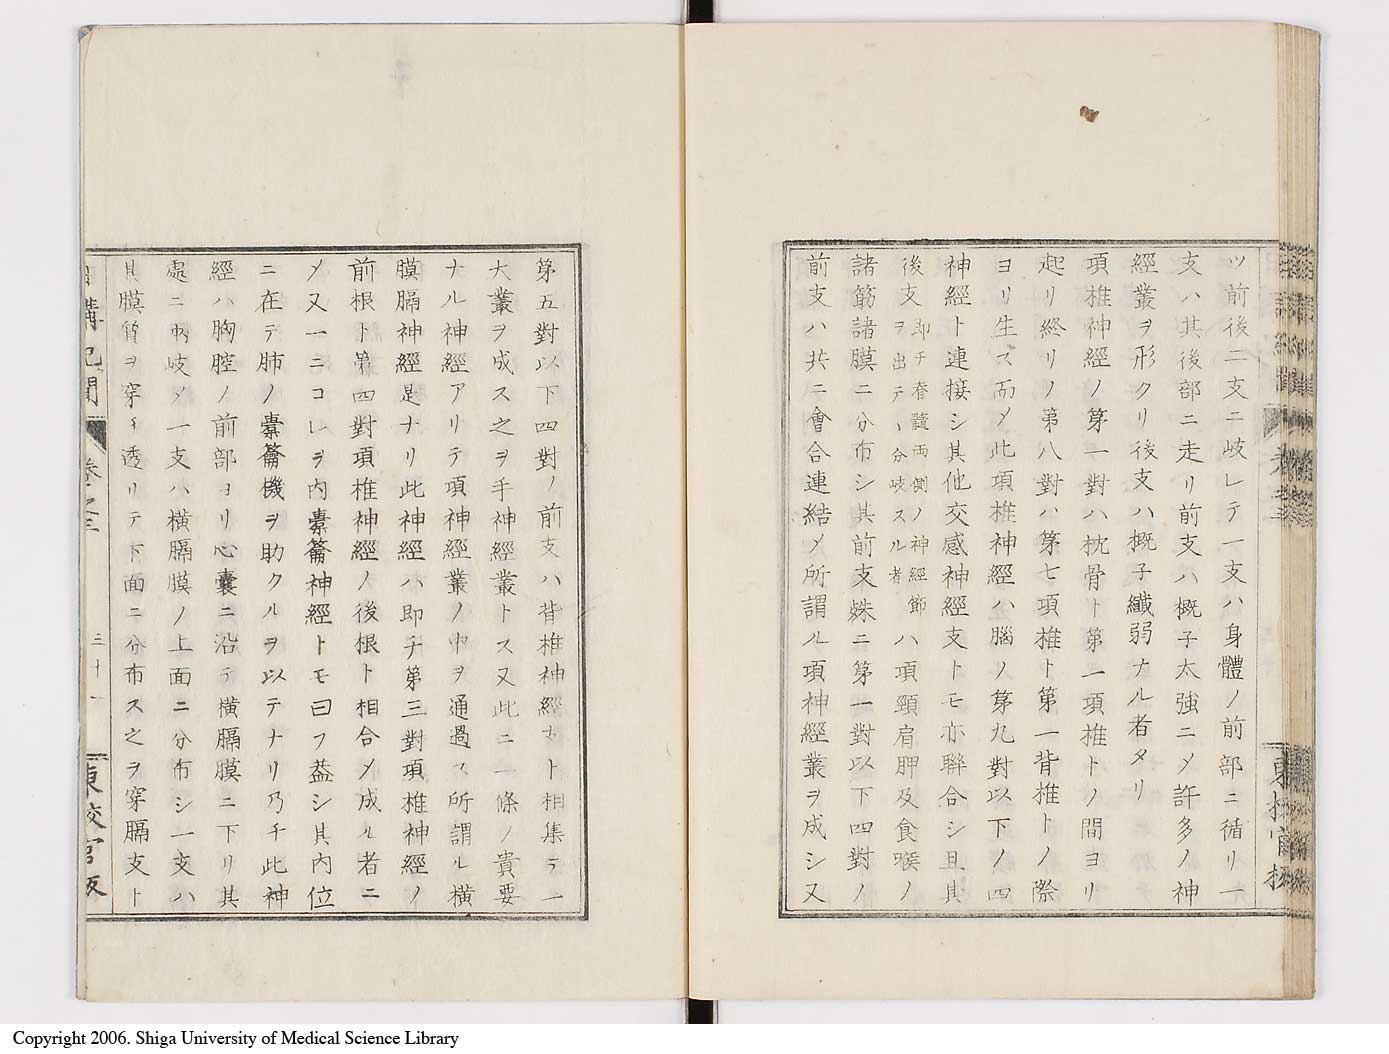 ツ前後二支ニ岐レテ一支ハ身體ノ前部ニ循リ一
支ハ其後部ニ走リ前支ハ概子太強ニメ許多ノ神
經叢ヲ形クリ後支ハ概子纖弱ナル者タリ
項椎神經ノ第一對ハ枕骨ト第一項椎トノ間ヨリ
起リ終リノ第八對ハ第七項椎ト第一背椎トノ際
ヨリ生ス而メ此項椎神經ハ腦ノ第九對以下ノ四
神經ト連接シ其他交感神經支トモ亦聯合シ且其
後支即チ脊髓両側ノ神經節ヲ出テヽ分岐スル者ハ項頸肩胛及食喉ノ
諸筋諸膜ニ分布シ其前支姝ニ第一對以下四對ノ
前支ハ共ニ會合連結メ所謂ル項神經叢ヲ成シ又
東校官板
第五對以下四對ノ前支ハ背椎神經ト相集テ一
大叢ヲ成ス之ヲ手神經叢トス又此ニ一條ノ貴要
ナル神經アリテ項神經叢ノ中ヲ通過ス所謂ル横
膜膈神經是ナリ此神經ハ即チ第三對項椎神經ノ
前根ト第四對項椎神經ノ後根ト相合メ成ル者ニ
メ又一ニコレヲ内橐籥神經トモ曰フ葢シ其内位
ニ在テ肺ノ橐籥機ヲ助クルヲ以テナリ乃チ此神
經ハ胸腔ノ前部ヨリ心囊ニ沿テ横膈膜ニ下リ其
處ニ両岐メ一支ハ横膈膜ノ上面ニ分布シ一支ハ
其膜質ヲ穿チ透リテ下面ニ分布ス之ヲ穿膈支ト
日講記聞
卷之三
三十一
東校官板